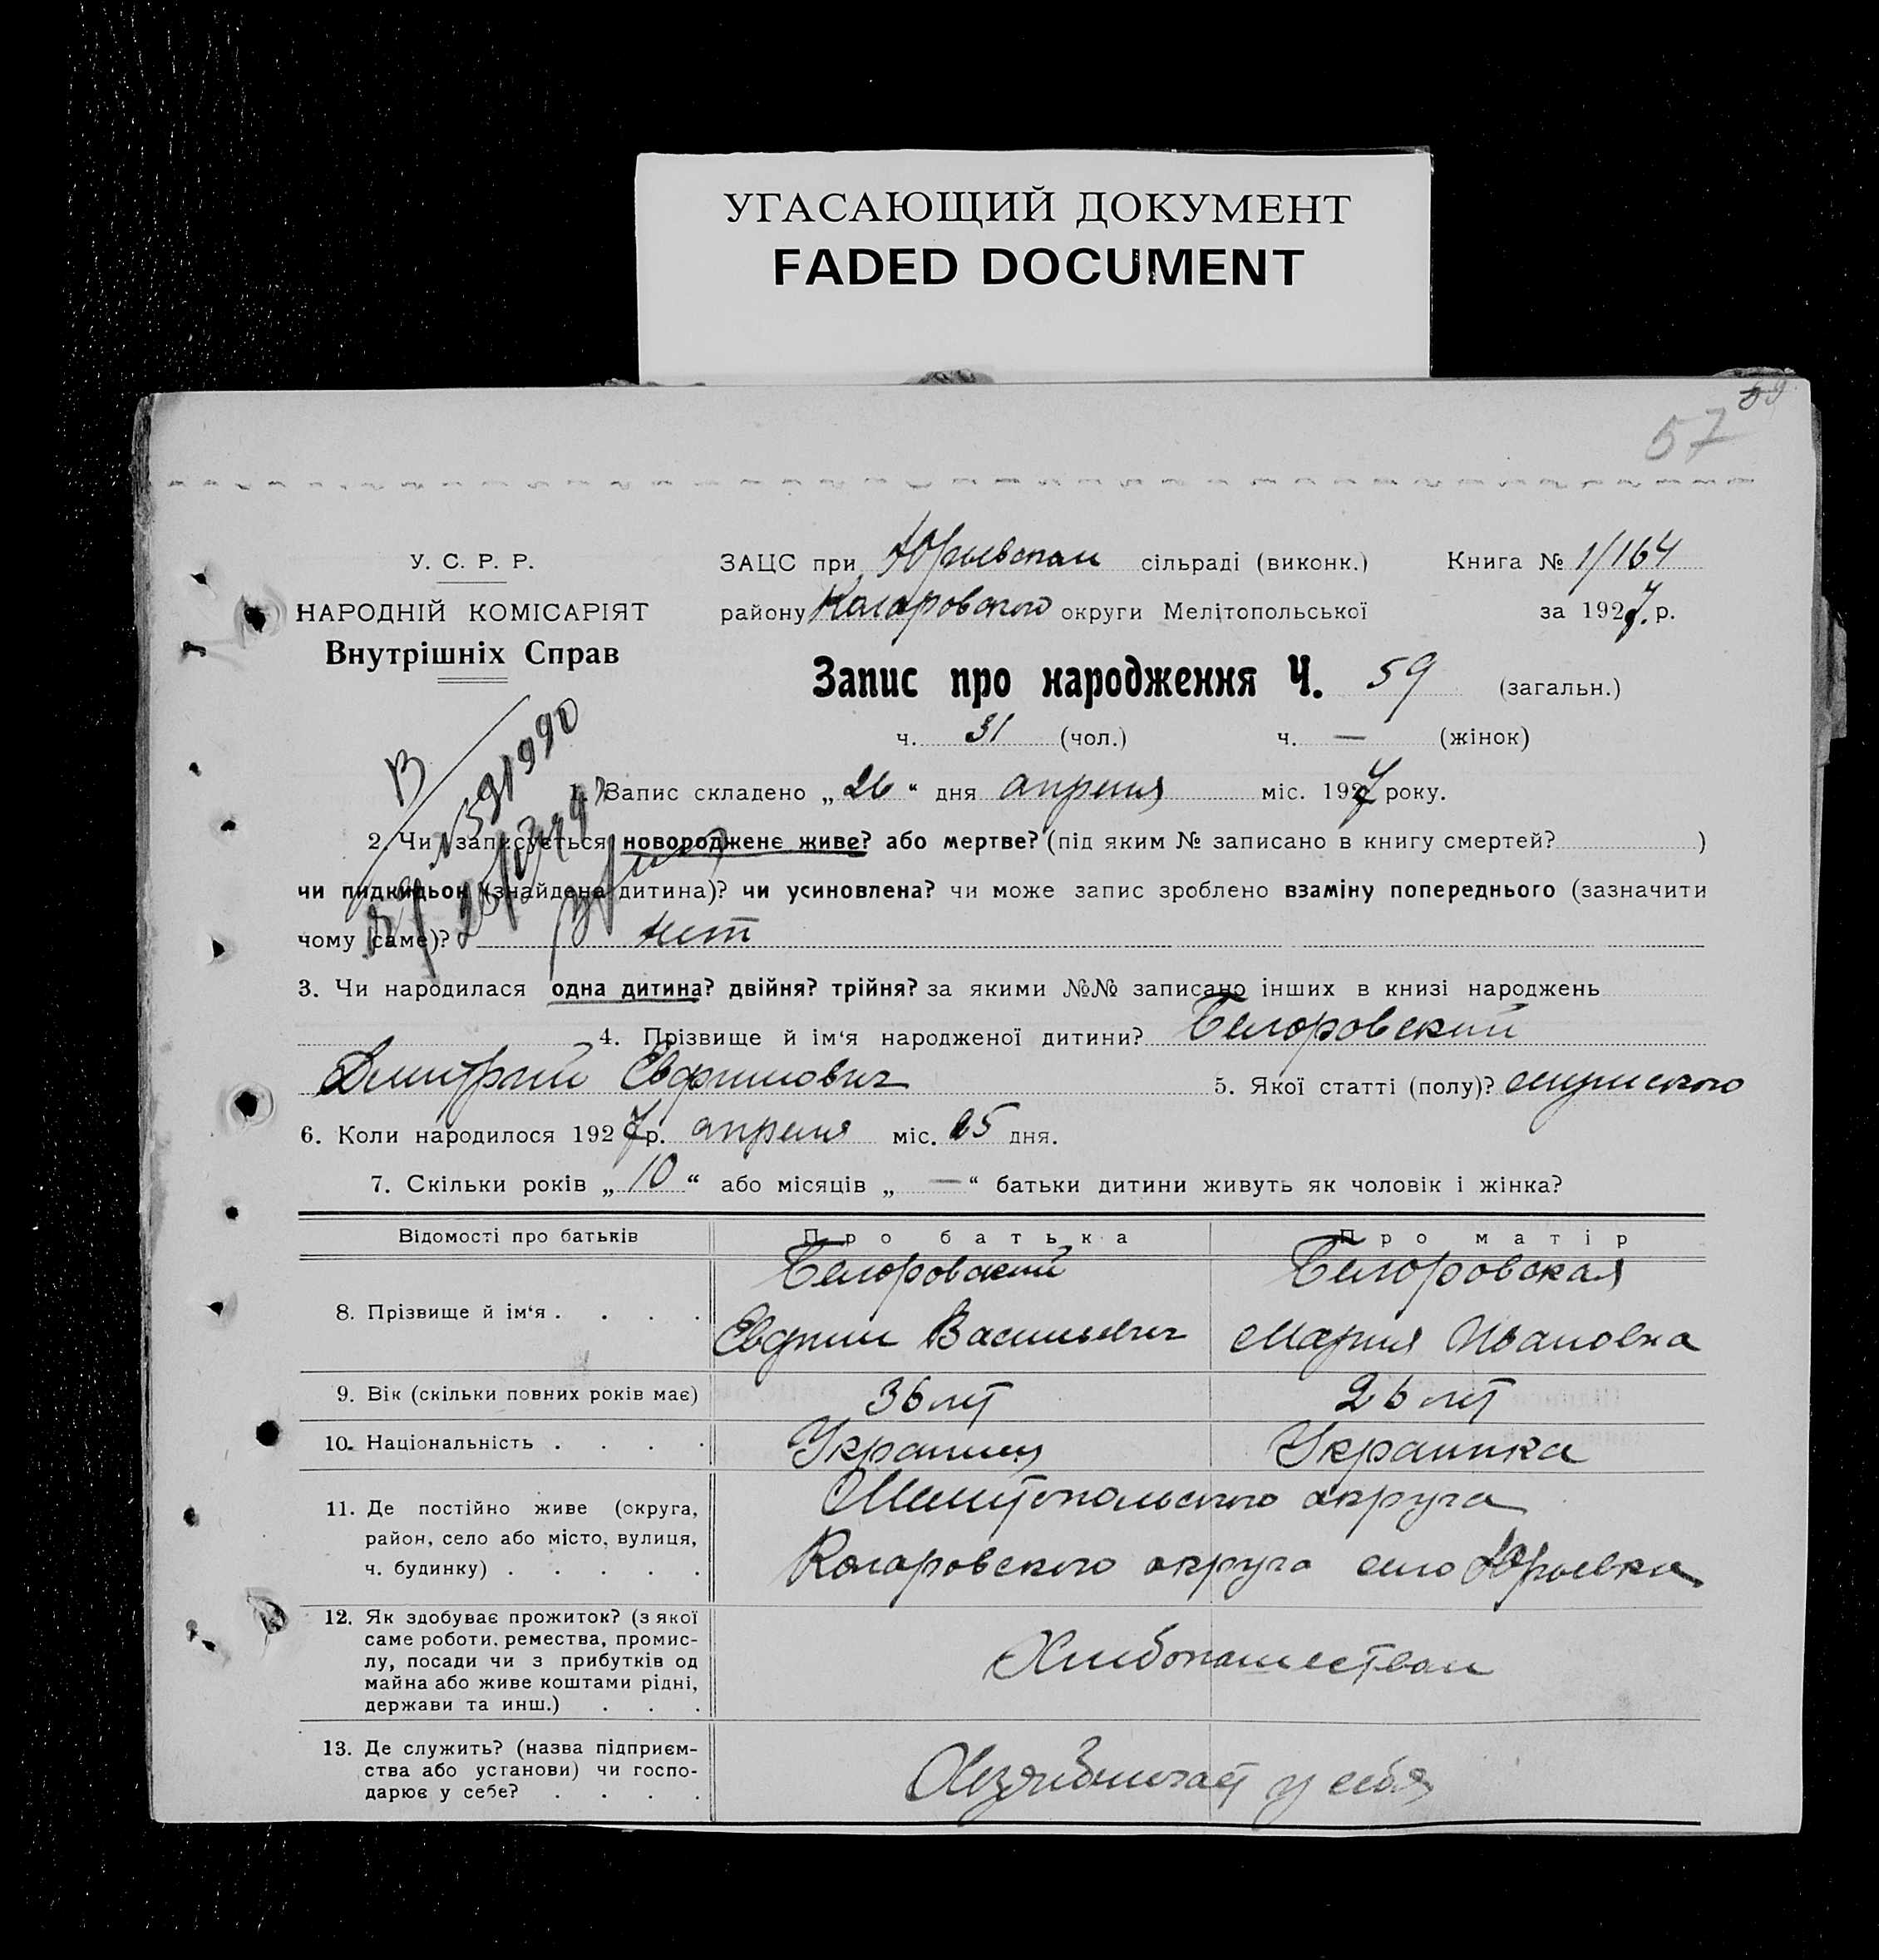 УГАСАЮЩИЙ ДОКУМЕНТ
FADED DOCUMENT
57
У. С. Р. Р.
НАРОДНІЙ КОМІСАРІЯТ
Внутрішніх Справ
ЗАЦС при Юрьевском сільраді (виконк.) Книга № 1/164
району Коларовского округи Мелітопольської за 1927 р.
Запис про народження Ч. 59 (загальн.)
ч. 31 (чол.) ч. — (жінок)
1. Запис складено „26“ дня апреля міс. 1927 року.
2. Чи записується новороджене живе? або мертве? (під яким № записано в книгу смертей? )
чи підкидьок (знайдена дитина)? чи усиновлена? чи може запис зроблено взаміну попереднього (зазначити
чому саме)? нет
3. Чи народилася одна дитина? двійня? трійня? за якими №№ записано інших в книзі народжень
4. Прізвище й ім‘я народженої дитини? Белоровский
Дмитрий Евфимович 5. Якої статті (полу)? мужского
6. Коли народилося 1927 р. апреля міс. 25 дня.
7. Скільки років „10“ або місяців „—“ батьки дитини живуть як чоловік і жінка?
Відомості про батьків Про батька Про матір
8. Прізвище й ім‘я . . . . Белоровский Белоровская
Евфим Васильевич Мария Ивановна
9. Вік (скільки повних років має) 36 лет 26 лет
10. Національність . . . . Украинец Украинка
11. Де постійно живе (округа, район, село або місто, вулиця, ч. будинку) . . . . . Мелитопольского округа
Коларовского округа село Юрьевка
12. Як здобуває прожиток? (з якої
саме роботи, ремества, промис-
лу, посади чи з прибутків од
майна або живе коштами рідні,
держави та инш.) . . . Хлибопашеством
13. Де служить? (назва підприєм-
ства або установи) чи госпо-
дарює у себе? . . . . Хозяйничает у себя